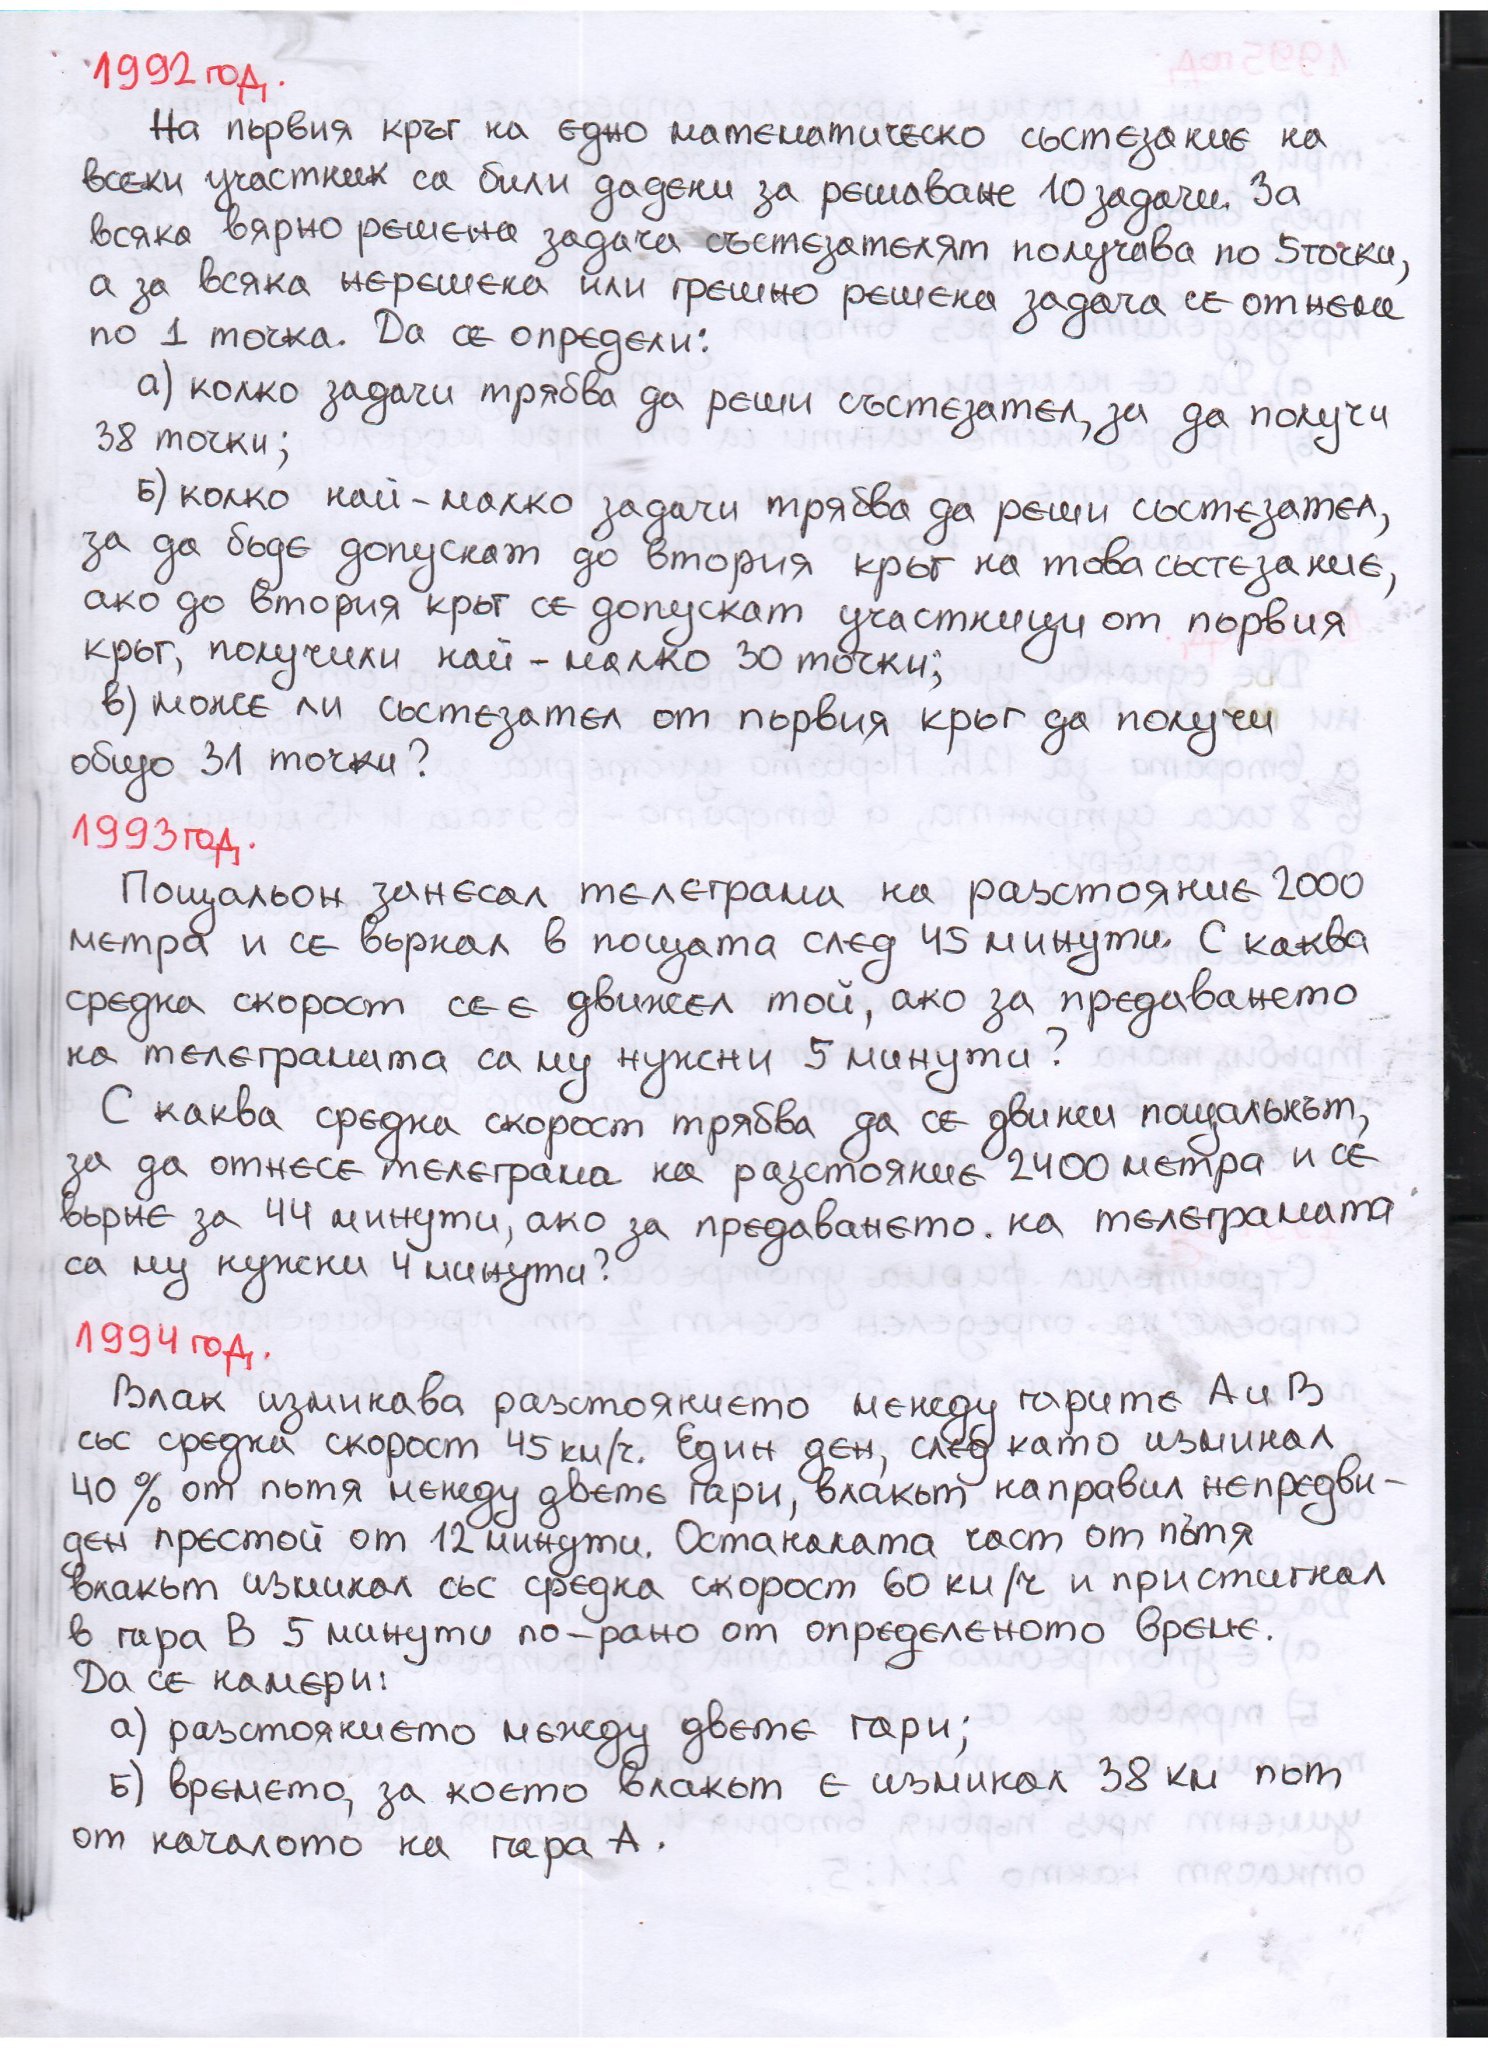 1992 год.
На първия кръг на едно математическо състезание на
всеки участник са били дадени за решаване 10 задачи. За
всяка вярно решена задача състезателят получава по 5 точки,
а за всяка нерешена или грешно решена задача се отнема
по 1 точка. Да се определи:
а) колко задачи трябва да реши състезател, за да получи
38 точки;
Б) колко най-малко задачи трябва да реши състезател,
за да бъде допускат до втория кръг на това състезание,
ако до втория кръг се допускат участници от първия
кръг, получили най-малко 30 точки;
в) може ли състезател от първия кръг да получи
общо 31 точки?
1993 год.
Пощальон занесал телеграма на разстояние 2000
метра и се върнал в пощата след 45 минути. С каква
средна скорост се е движел той, ако за предаването
на телеграмата са му нужни 5 минути?
С каква средна скорост трябва да се движи пощальнът,
за да отнесе телеграма на разстояние 2400 метра и се
върне за 44 минути, ако за предаването. на телеграмата
са му нужни 4 минути?
1994 год.
Влак изминава разстоянието между гарите А и В
със средна скорост 45 км/ч. Един ден, след като изминал
40 % от пътя между двете гари, влакът направил непредви-
ден престой от 12 минути. Останалата част от пътя
влакът изминал със средна скорост 60 км/ч и пристигнал
в гара В 5 минути по-рано от определеното време.
Да се намери:
а) разстоянието между двете гари;
Б) времето, за което влакът е изминал 38 км път
от началото на гара А.